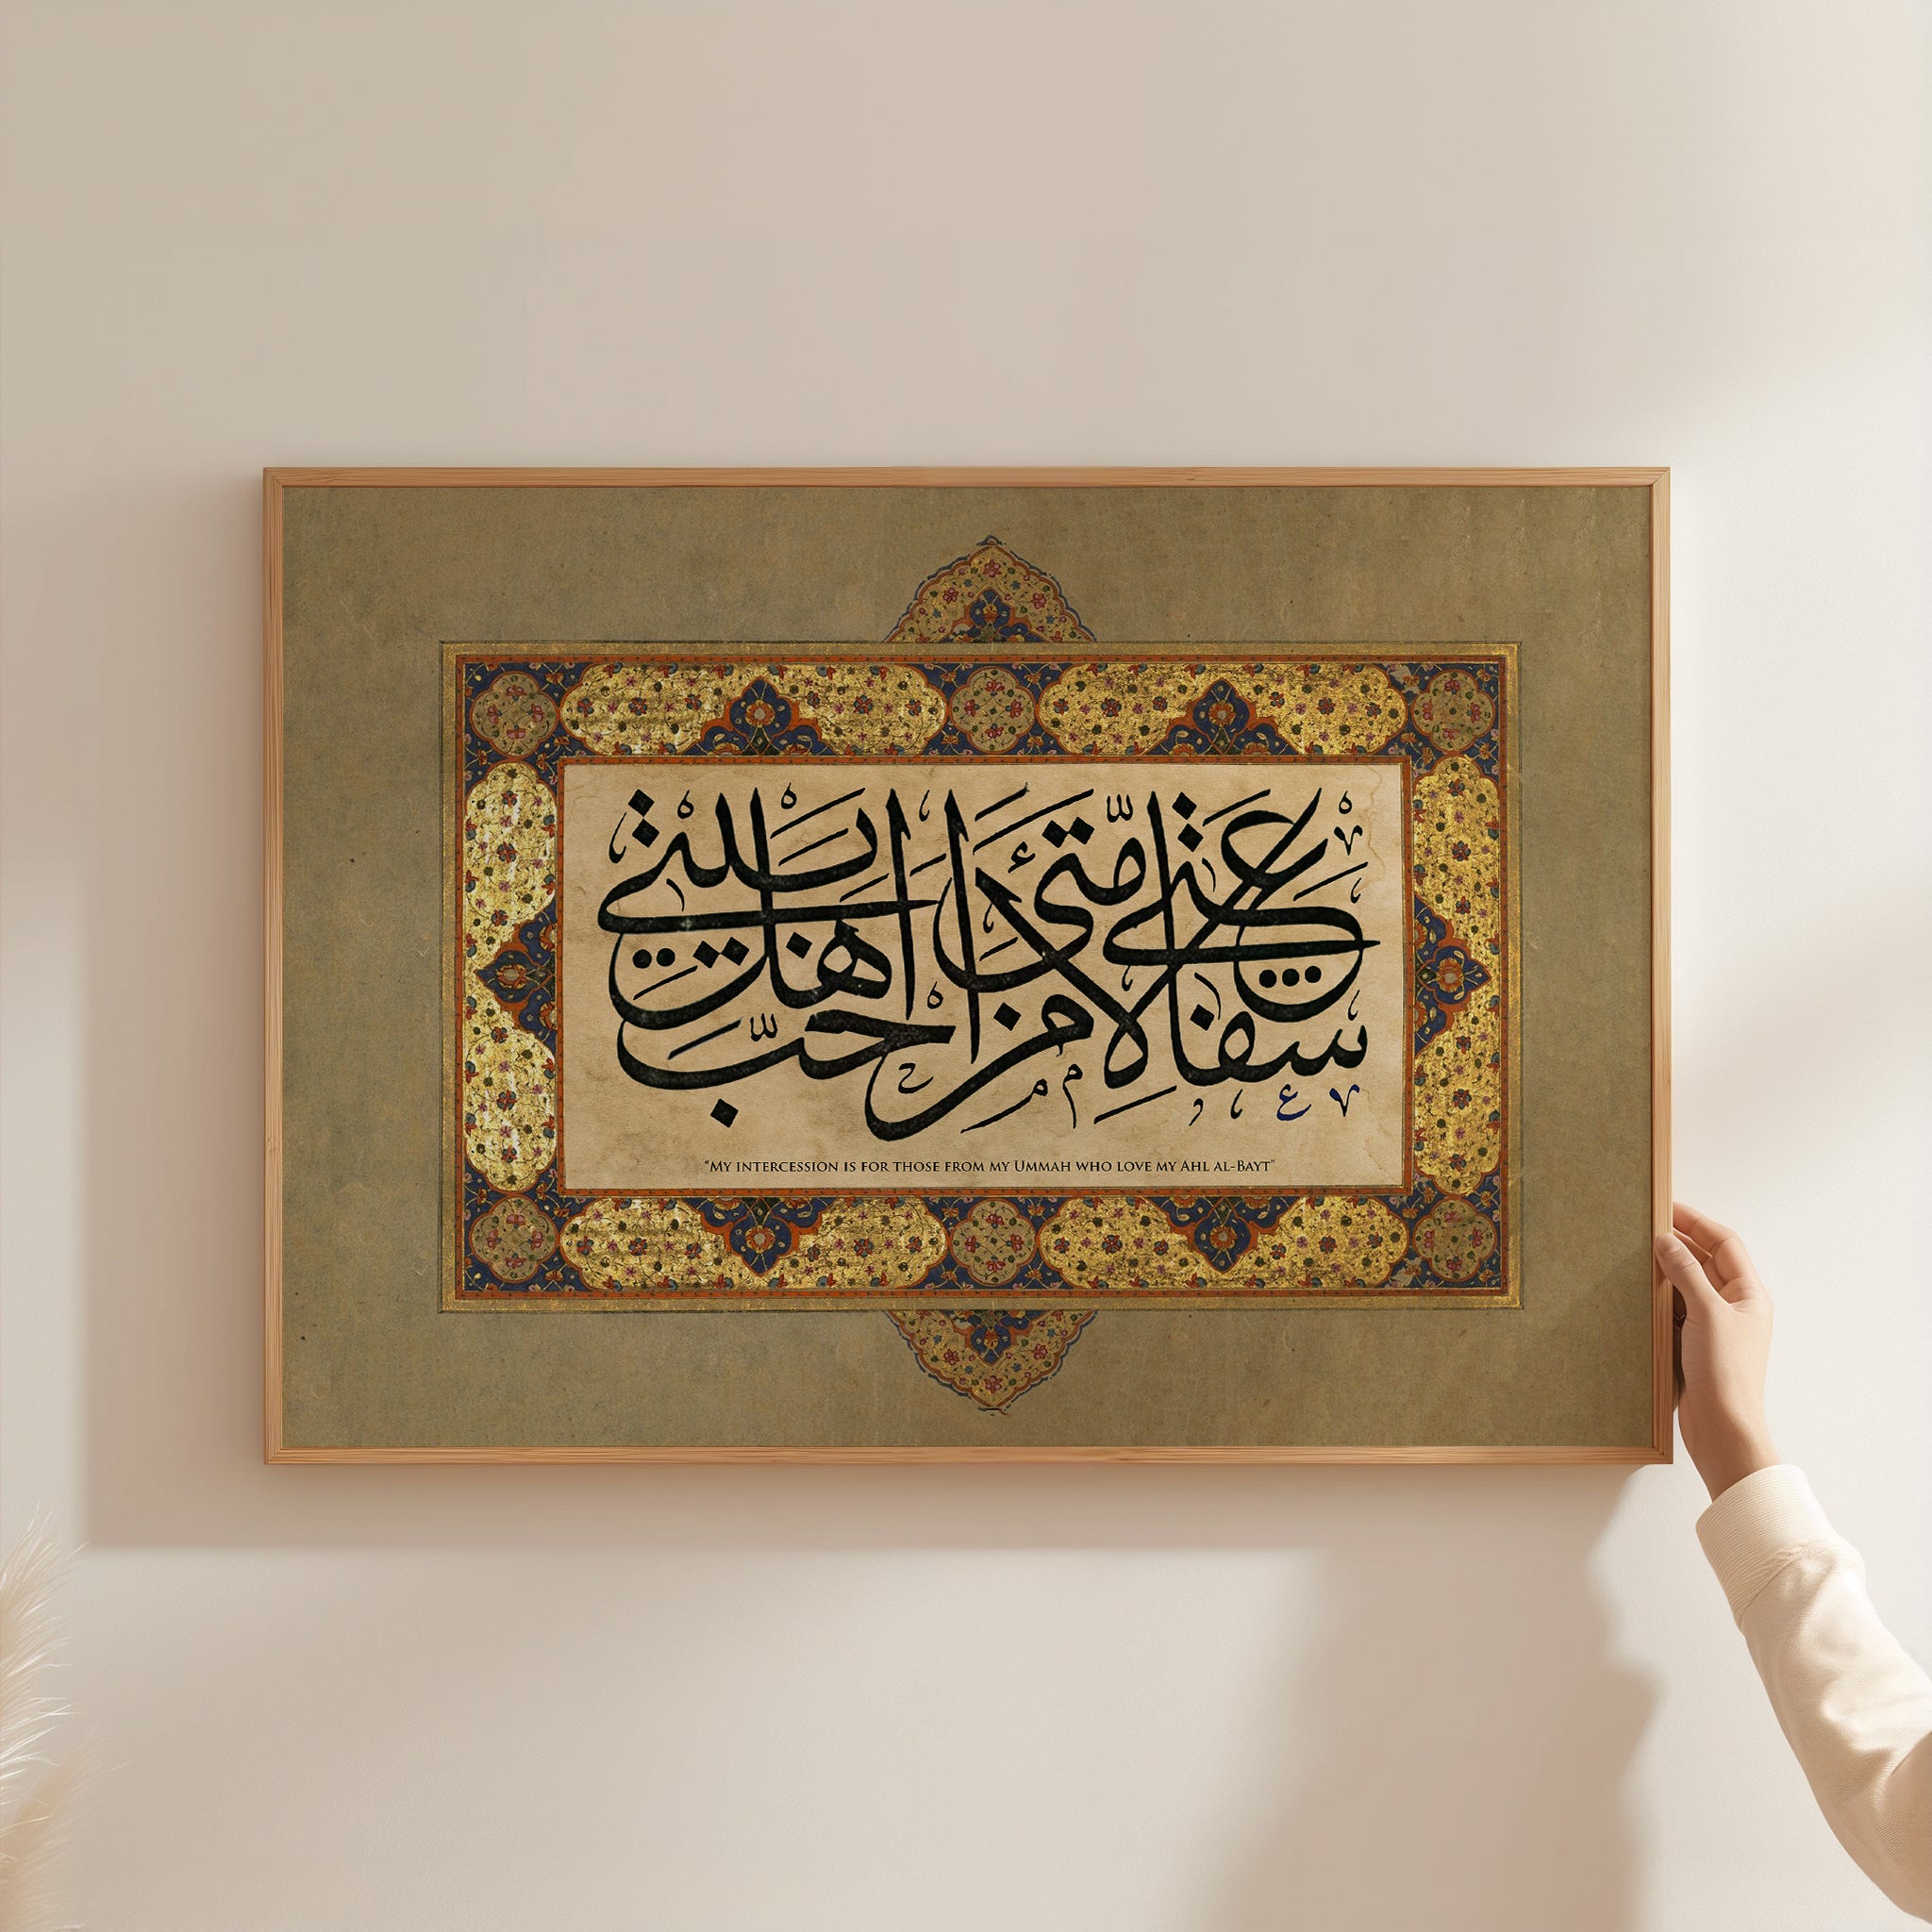 شفاعتي لأمتي من أحبّ أهل بيتي
“My intercession is for those from my Ummah who love my Ahl al-Bayt”